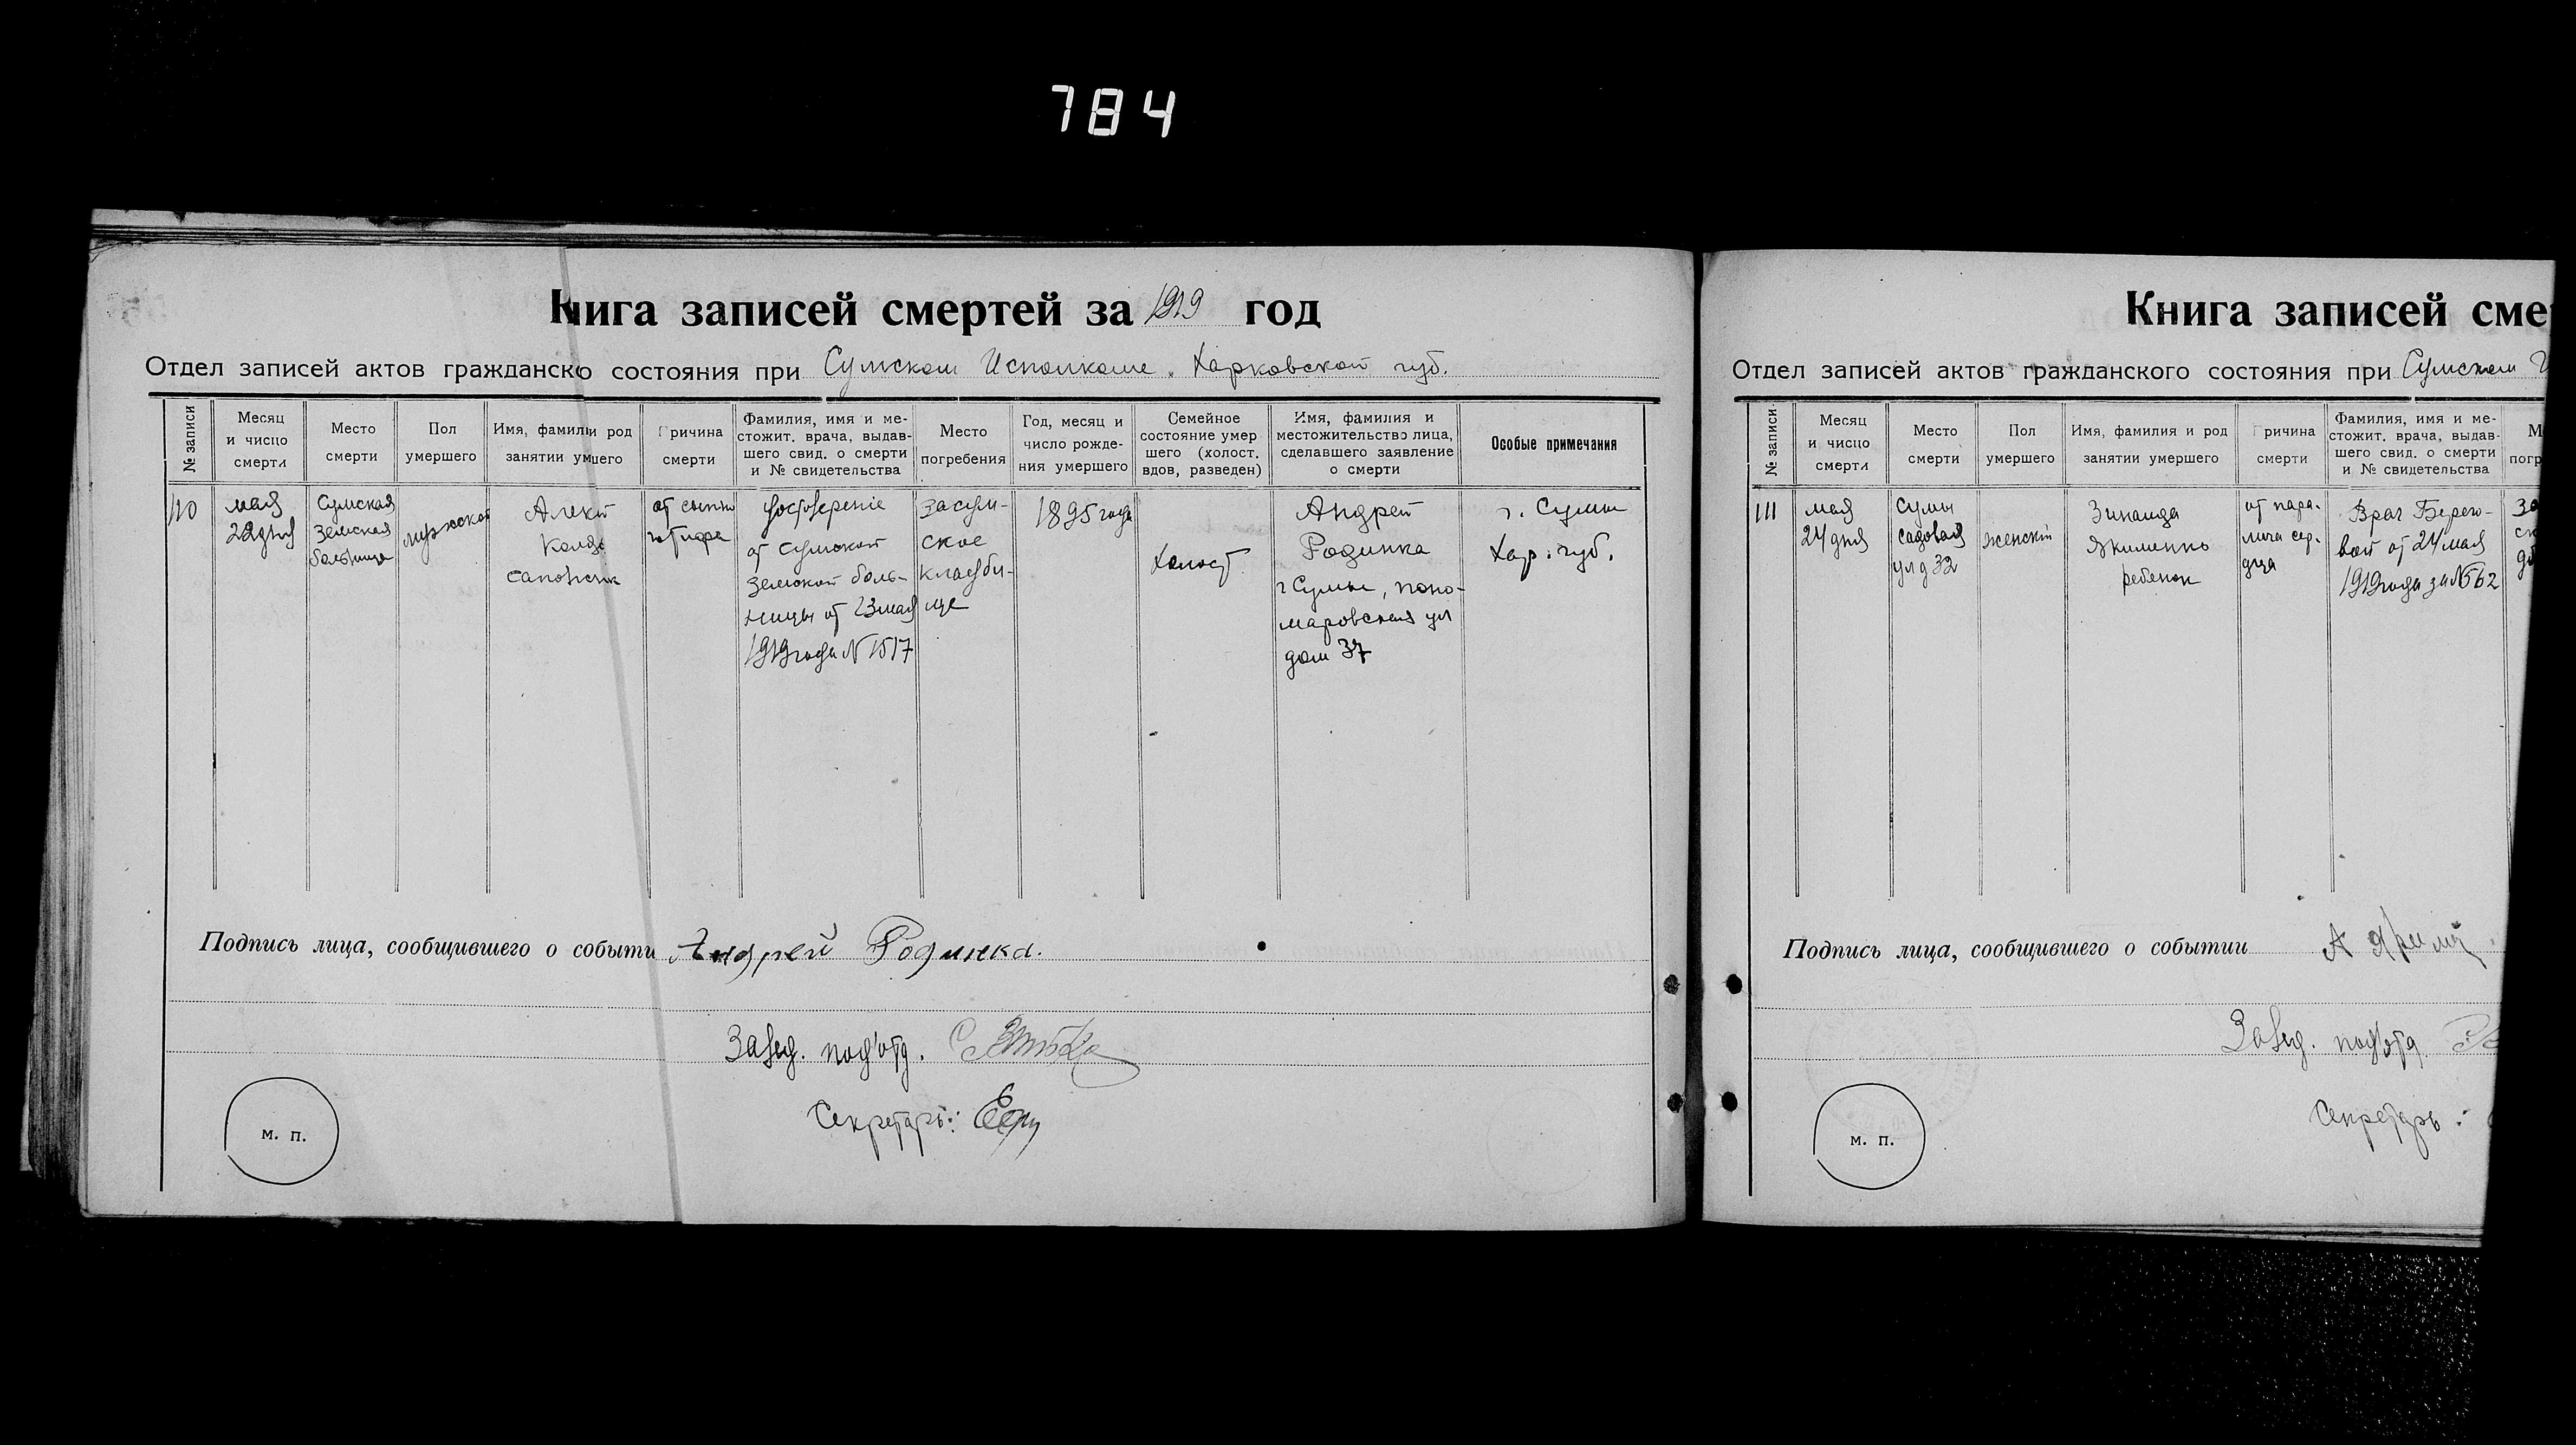 784
Книга записей смертей за 1919 год
Отдел записей актов гражданско состояния при Сумском Исполкоме. Харковской губ.
№ записи
Месяц и чиcцо смерти
Место смерти
Пол умершего
Имя, фамилия род занятии умшего
Причина смерти
Фамилия, имя и ме-
стожит. врача, выдав-
шего свид. о смерти
и № свидетельства
Место погребения
Год, месяц и
число рожде-
ния умершего
Семейное
состояние умер
шего (холост.
вдов, разведен)
Имя, фамилия и
местожительство лица,
сделавшего заявление
о смерти
Особые примечания
110
мая
22 дня
Сумская
Земская
больница
мужской
Алекс
сапожник
от сыпно
го тифа
удостоверение
от Сумской
Земской боль-
ницы от 23 мая
1919 года № 1517
засум-
ское
кладби-
ще
1895 года
Холост.
Андрей
Родинка
г Сумы, поно-
маровская ул
дом 37
г. Сумы
Хар. губ.
Подпись лица, сообщившего о событи Андрей Родинка.
Завед. под'отд.
Секретарь:
м. п.
Книга записей сме
Отдел записей актов гражданского состояния при Сумском И
№ записи.
Месяц и чиcцо смерти
Место смерти
Пол умершего
Имя, фамилия и род занятии умершего
Причина смерти
Фамилия, имя и ме-
стожит. врача, выдав-
шего свид. о смерти
и № свидетельства
М
погр
111
мая
24 дня
Сумы
садовая
ул д 32
женский
Зинаида
Якименко
ребенок
от пара-
лича сер-
дца
Врач Берего-
вой от 24 мая
1919 года за № 562
За
Подпись лица, сообщившего о событии
Завед. под'отд.
Секретарь:
м. п.